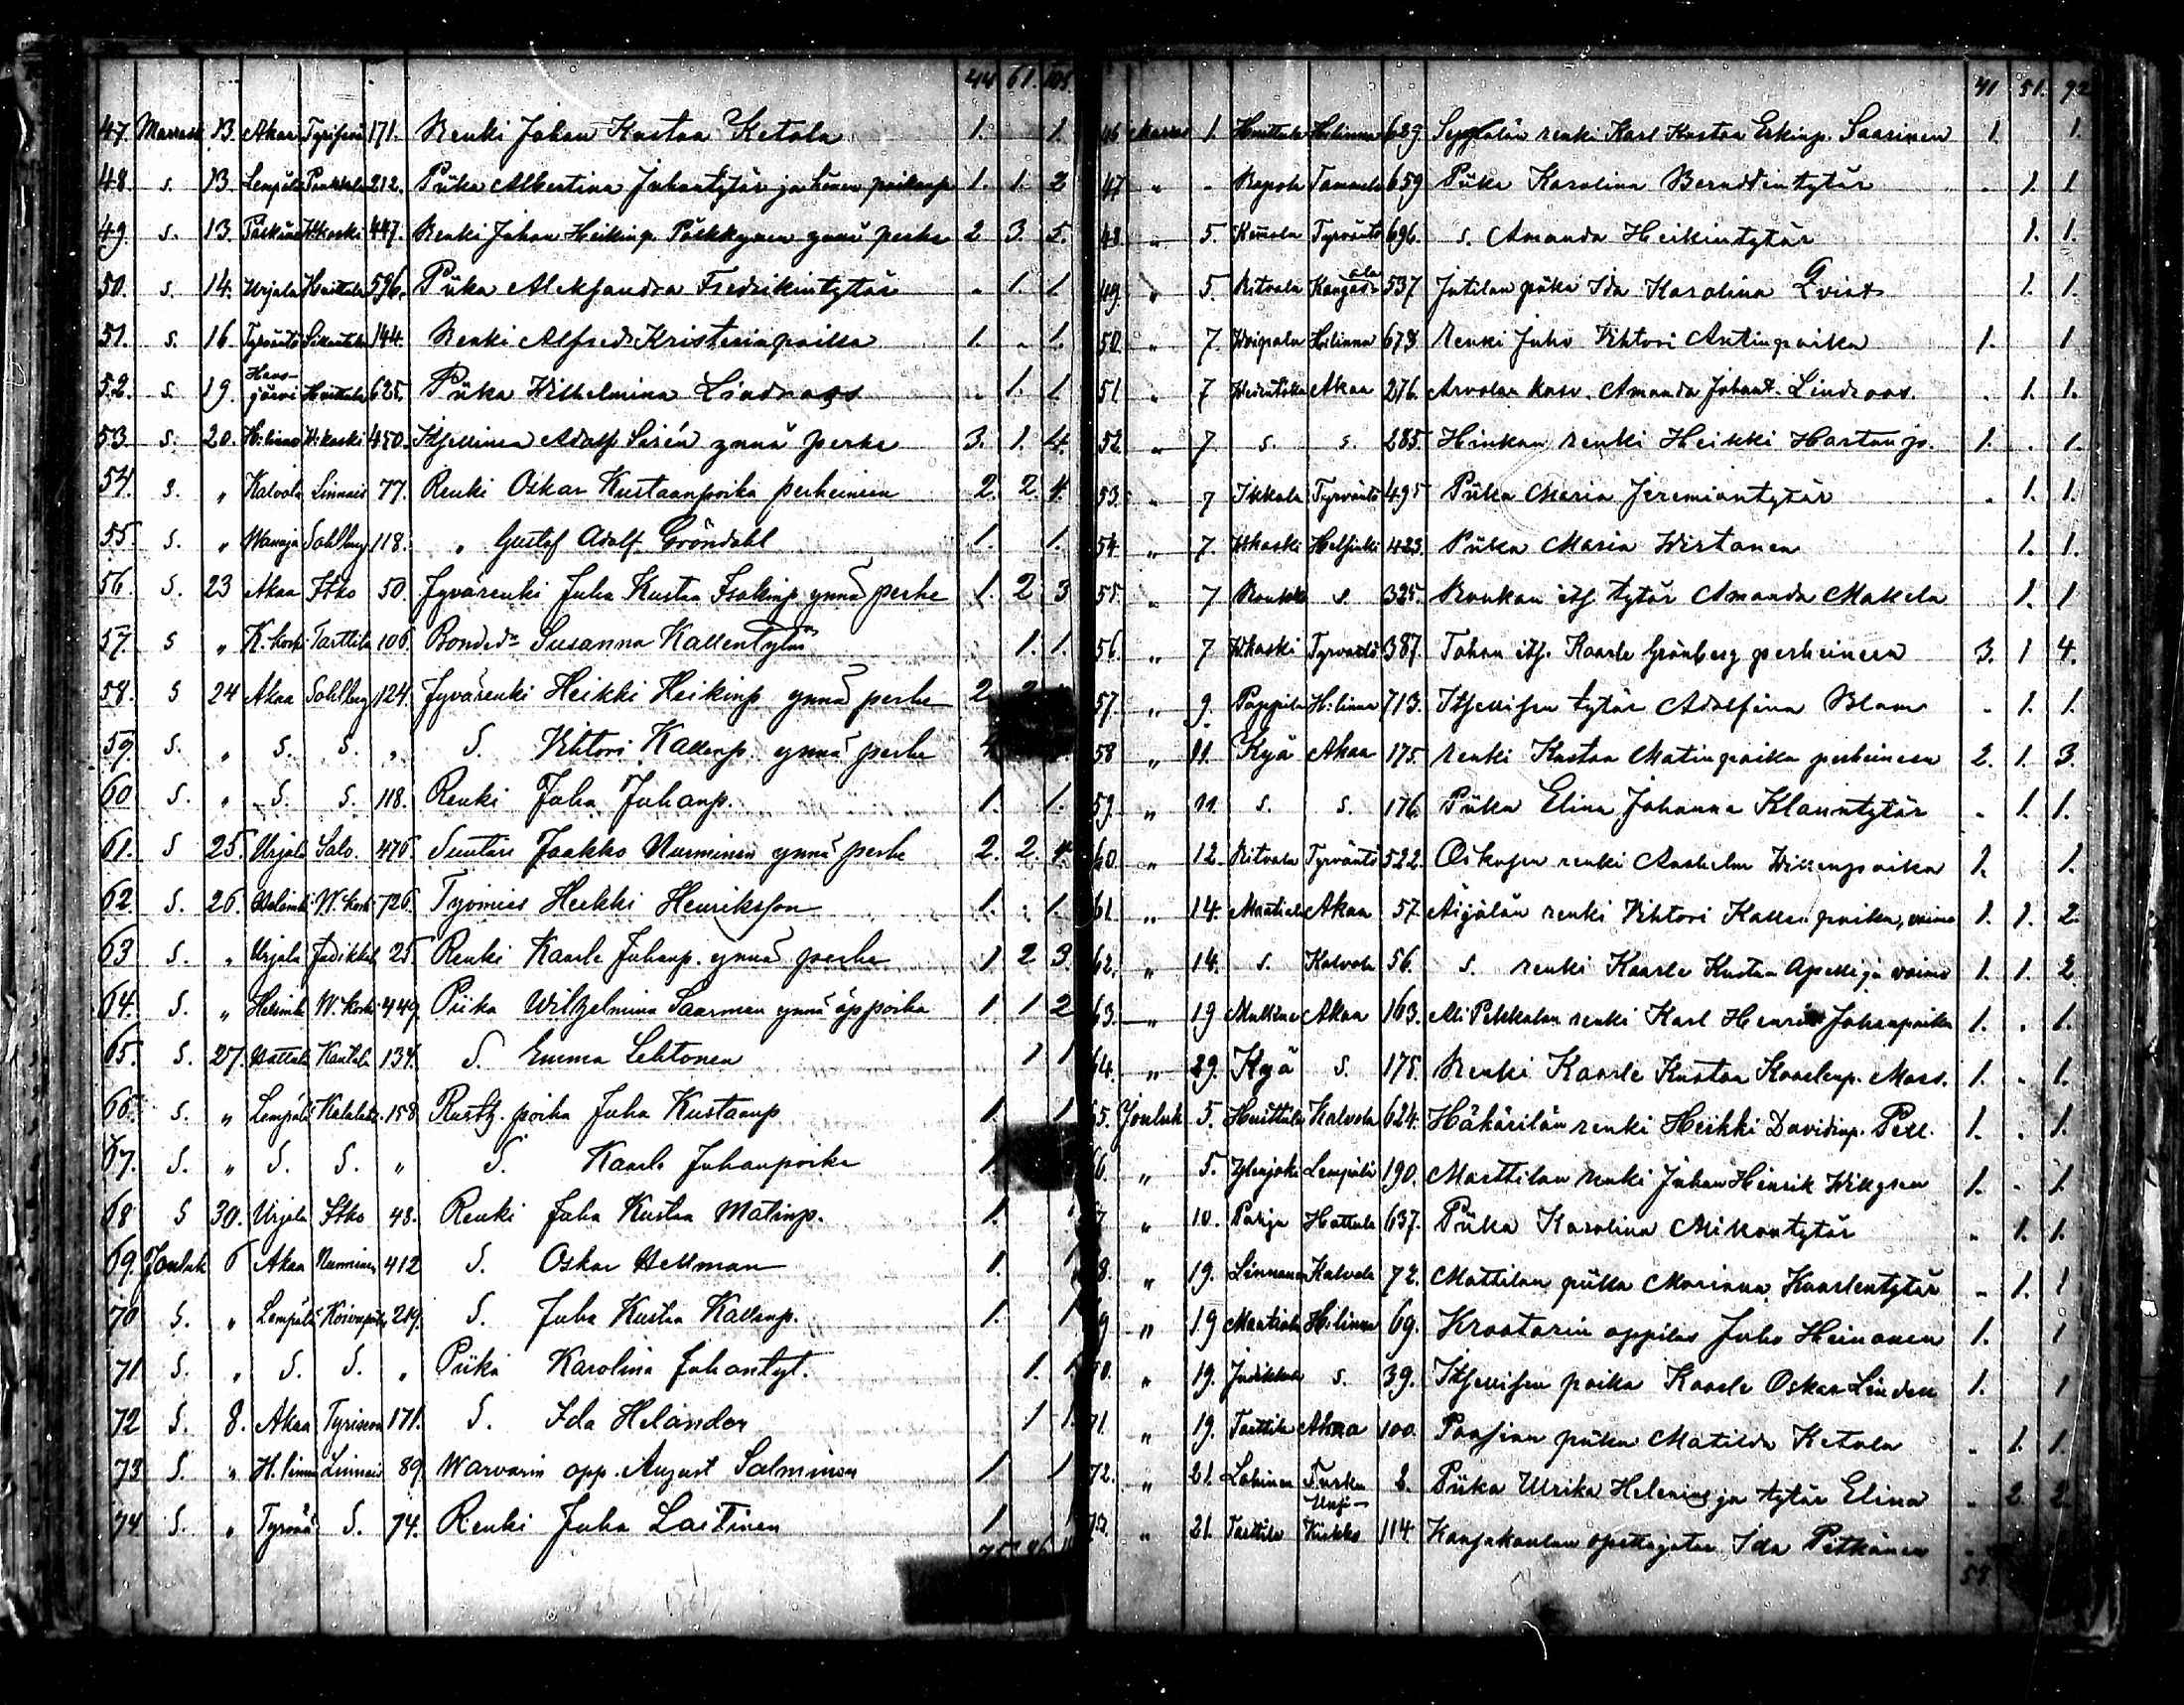 44. 61. 105.
47. Marrask 13. Akaa 171. Renki Johan Kustaa Ketola 1. 1.
48. s. 13. Lempäälä 212. Piika Albertina Juhantytär ja hänen poikansa 1. 1. 2
49. s. 13. W.koski 447. Renki Johan Heikinp. Pälkkynen ynnä perhe 2. 3. 5.
50. s. 14. Urjala Huittula 596. Piika Aleksandra Fredrikintytär „ 1. 1
51. s. 16. Tyrväntö 144. Renki Alfred Kristerinpoika 1. „ 1.
52. s. 19. Hausjärvi Huittula 625. Piika Wilhelmina Lindroos „ 1. 1
53. s. 20. H:linna W:koski 450. Itsellinen Adolf Sirén ynnä perhe 3. 1. 4.
54. s. „ Kalvola Linnais 77. Renki Oskar Kustaanpoika perheineen 2. 2. 4.
55. s. „ Wanaja Sohlberg 118. „ Gustaf Adolf Gröndahl 1. 1.
56. S. 23 Akaa Itko 50. Jyvärenki Juha Kustaa Isakinp. ynnä perhe 1. 2 3
57. s „ K.koski Tarttila 106. Bonded:r Susanna Kallentytär 1. 1.
58. S 24 Akaa Sohlberg 124. Jyvärenki Heikki Heikinp. ynnä perhe 2
59. S. „ S. S. „ S. Vihtori Kallenp. ynnä perhe
60 S. „ S. S. 118. Renki Juha Juhanp. 1. 1.
61. S 25. Urjala Salo. 476. Suutari Jaakko Nurminen ynnä perhe 2. 2. 4.
62. S. 26. Helsinki W.koski 726. Työmies Heikki Henriksson 1. „ 1.
63 S. „ Urjala Judikkala 25. Renki Kaarle Juhanp. ynnä perhe 1 2 3.
64. S. „ Helsinki W.koski 449. Piika Wilhelmina Saarinen ynnä äp.poika 1. 1 2
65. S. 27. Hattula Kantala 134. S. Emma Lehtonen 1 1
66. S. „ Lempäälä 158. Rusth. poika Juha Kustaanp. 1. 1
67. S. „ S. S. „ S. Kaarle Juhanpoika 1.
68 S 30. Urjala Itko 48. Renki Juha Kustaa Matinp. 1.
69. Jouluk 6 Akaa Nurminen 412 S. Oskar Hellman 1. 1
70 S. „ Lempäälä 219. S. Juha Kustaa Kallenp. 1. 1
71 S. „ S. S. „ Piika Karolina Juhantyt. 1. 1
72 S. 8. Akaa 171. S. Ida Helander 1 1.
73 S. „ H.linna Linnais 89. Warvarin opp. August Salminen 1 1
74 S. „ Tyrvää S. 74. Renki Juha Laitinen 1 1
41 51. 92
46 Marras 1. Huittula H:linna 629. Seppälän renki Karl Kustaa Eskinp. Saarinen 1. 1.
47 „ „ Rapola Tammela 659 Piika Karolina Berndtintytär „ 1. 1
48. „ 5. Tyrväntö 696. s. Amanda Heikintytär 1. 1.
49. „ 5. Ritvala Kangasala 537 Jutilan piika Ida Karolina Qvist 1. 1.
50. „ 7. Woipala H:linna 678 Renki Juho Vihtori Antinpoika 1. 1
51 „ 7 Akaa 276. Arvolan kasv. Amanda Johant. Lindroos. „ 1. 1.
52 „ 7. s. s. 285. Hinkan renki Heikki Hartanp. 1. „ 1.
53. „ 7 Ikkala Tyrväntö 495 Piika Maria Jeremiantytär „ 1. 1.
54. „ 7. W:koski Helsinki 423. Piika Maria Wirtanen 1. 1.
55. „ 7 Roukko s. 325. Roukon itf. tytär Amanda Makela 1. 1
56. „ 7 W:koski Tyrväntö 387. Tahan itf. Kaarle Grönberg perheineen 3. 1 4.
57. „ 9. Pappila H:linna 713. Itsellisen tytär Adolfina Blom „ 1. 1.
58 „ 11. Kyä Akaa 175. Renki Kustaa Matinpoika perheineen 2. 1. 3.
59. „ 11. s. s. 176. Piika Elina Johanna Klauntytär „ 1. 1.
60. „ 12. Ritvala Tyrväntö 522. renki Anshelm Willenpoika 1. 1.
61. „ 14. Mantiala Akaa 57. Äijälän renki Vihtori Kallenpoika, vaimo 1. 1. 2.
62. „ 14. s. Kalvola 56. s. renki Kaarle Kustaa Apelli ja vaimo 1. 1. 2
63. „ 19 Akaa 163. Ali Pekkolan renki Karl Henrik Johanpoika 1. „ 1.
64. „ 29. Kyä s. 175. Renki Kaarle Kustaa Kaarlenp. Mass. 1. „ 1.
65. Jouluk 5. Huittula Kalvola 624. Häkärilän renki Heikki Davidinp. Pell. 1. „ 1.
66. „ 5. Lempäälä 190. Marttilan renki Juhan Henrik Wikgren 1. „ 1.
7 „ 10. Pohja Hattula 637. Piika Karolina Mikontytär „ 1. 1.
8. „ 19. Linnainen Kalvola 72. Mattilan piika Marianna Kaarlentytär „ 1. 1
9 „ 19 Mantiala H:linna 69. Kraatarin oppilas Juho Heinonen 1. 1
0. „ 19. Judikkala s. 39. Itsellisen poika Kaarle Oskar Linden 1. 1
71. „ 19. Tarttila Akaa 100. Paasian piika Matilda Ketola „ 1. 1.
72. „ 21. Lahinen Turku 8. Piika Ulrika Helenius ja tytär Elina „ 2. 2.
73. „ 21. Tarttila Uusikirkko 114. Kansakoulun opettajatar Ida Pitkänen